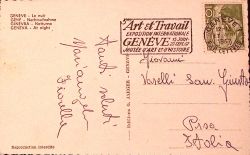 GENÈVE - La nuit
GENF - Nachtaufnahme
GINEVRA - Notturno
GENEVA - At night
Tanti saluti
Mariangela
Fiorella
Reproduction interdite
"Art et Travail"
EXPOSITION INTERNATIONALE
GENÈVE
MUSÉE D'ART ET D'HISTOIRE
GENÈVE
Giovanni
Vaselli San Giusto
Pisa
Italia